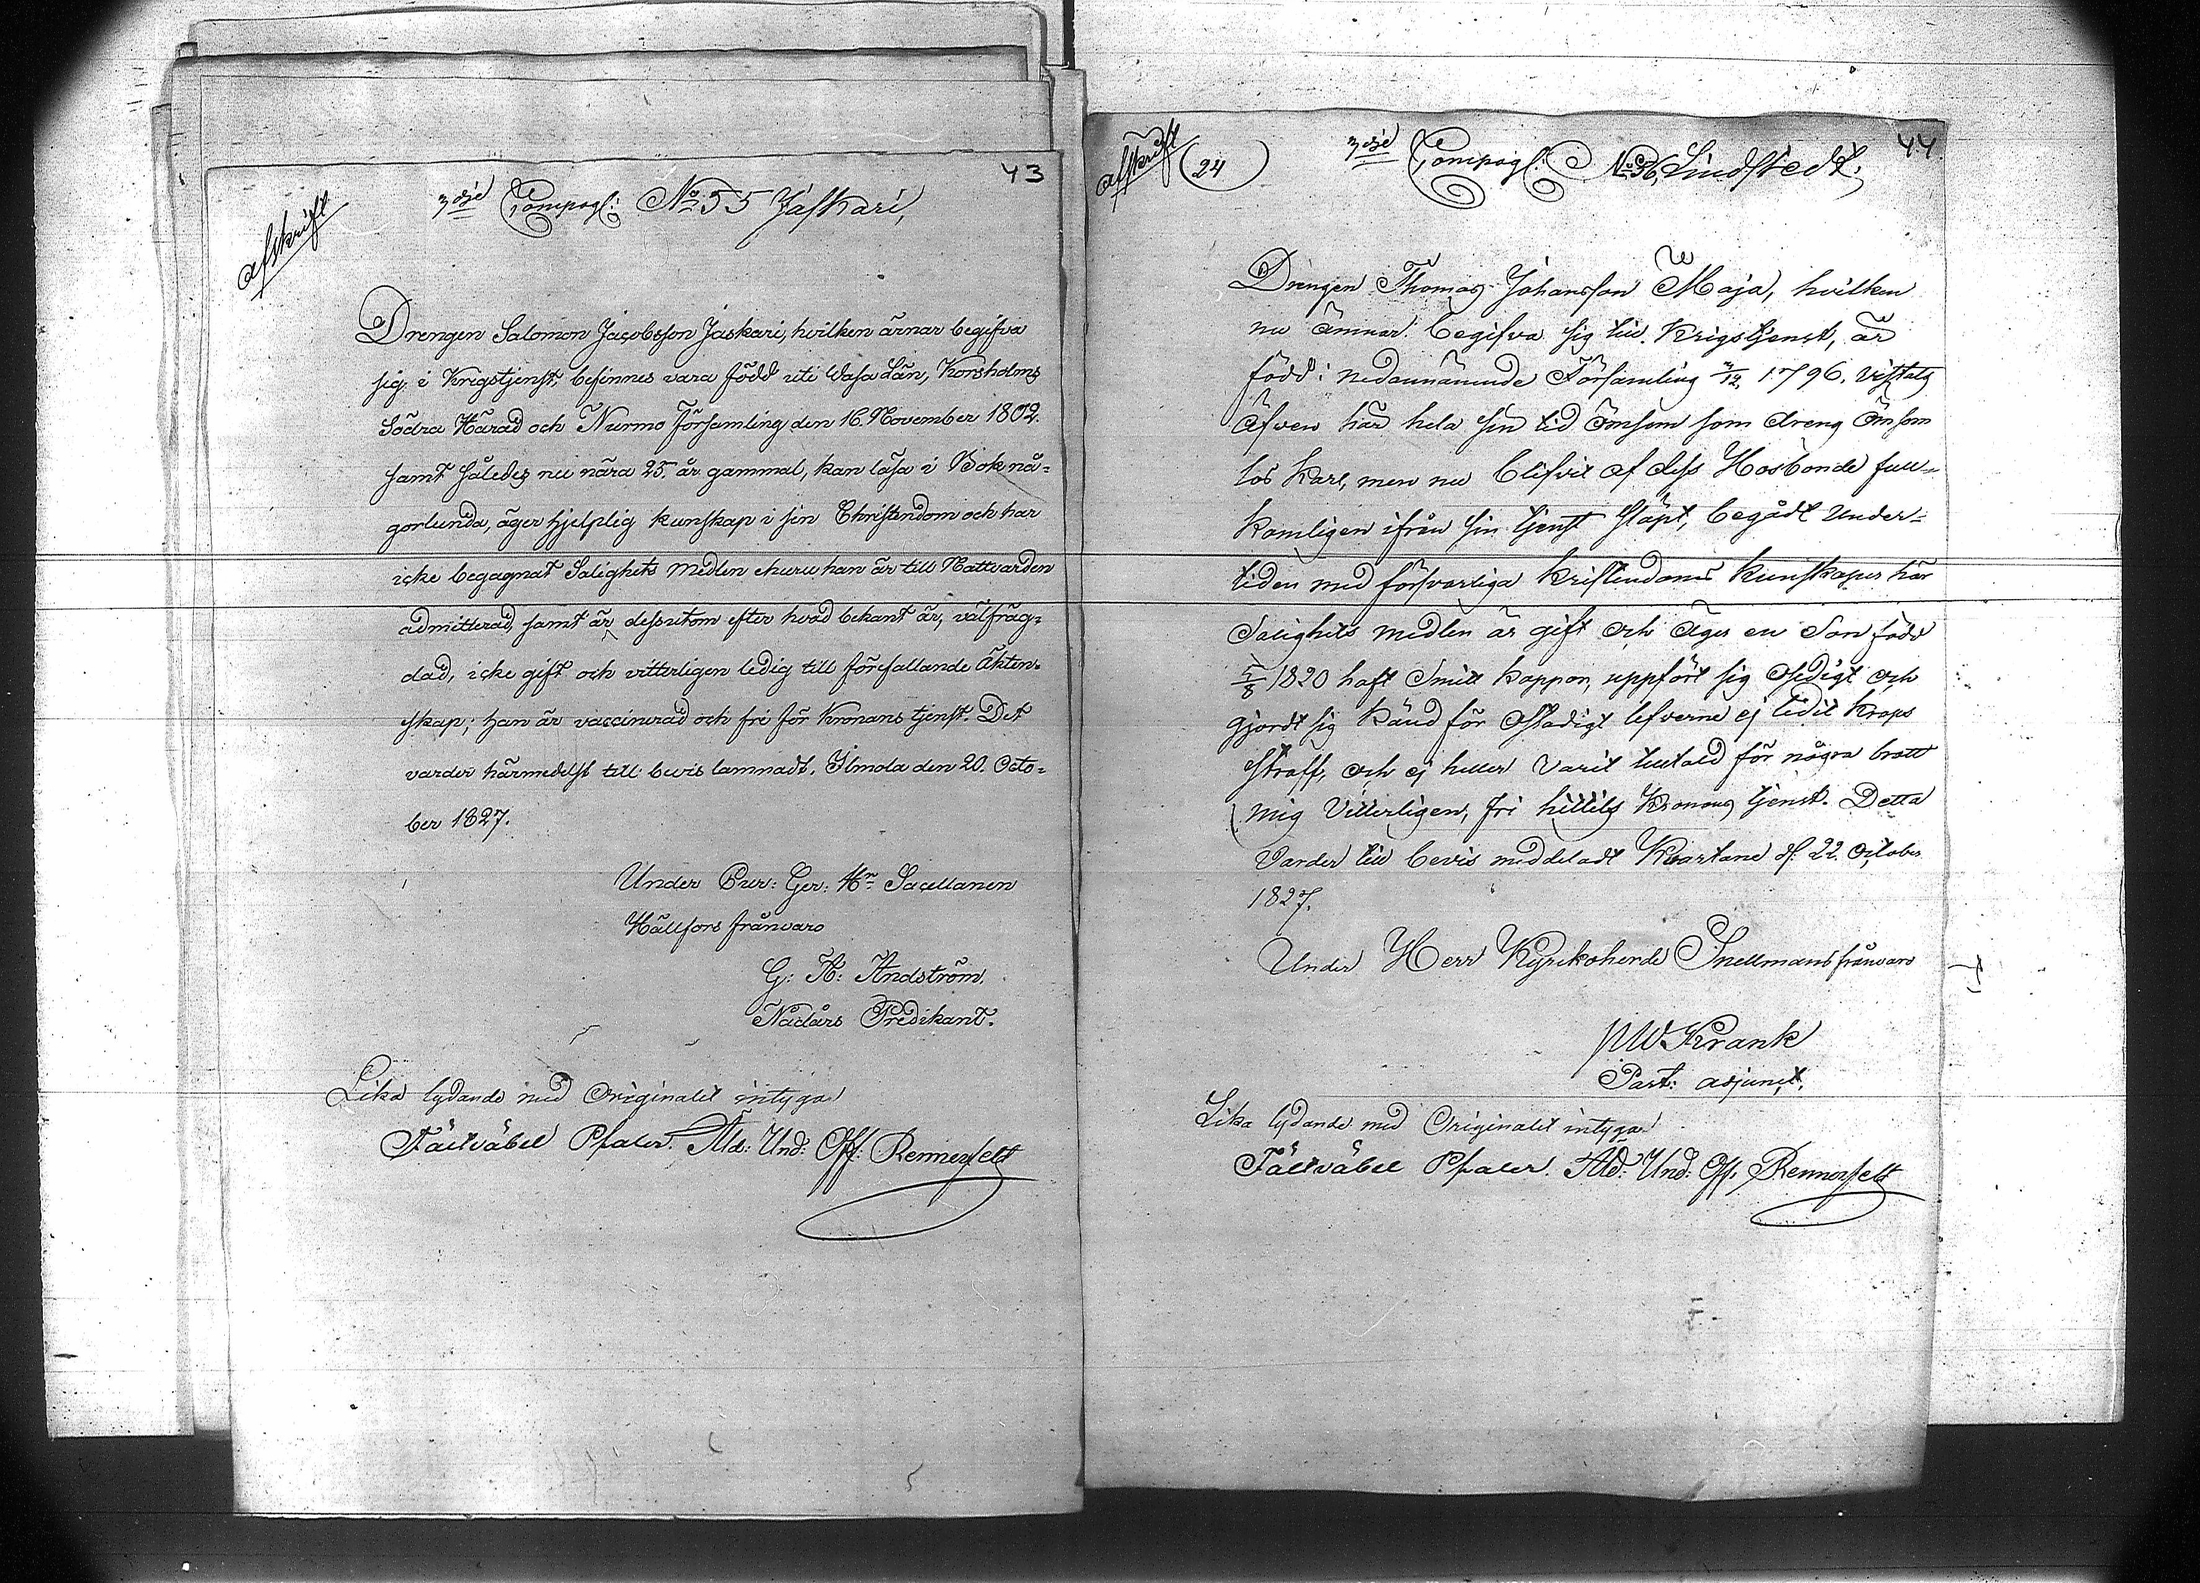 43
Afskrift
3dje Compagl: No 55 Jaskari,
Drengen Salomon Jacobsson Jaskari, hvilken ärnar begifva
sig i Krigstjenst, befinnes vara född uti Wasa Län, Korsholms
Södra Härad och Nurmo Församling den 16. November 1802.
samt således nu nära 25. år gammal, kan läsa i Bok nå-
gorlunda, äger hjelplig kunskap i sin Christendom och har
icke begagnat Salighets Medlen ehuru han är till Nattvarden
admitterad, samt är dessutom efter hvad bekant är, välfräg-
dad, icke gift och vitterligen ledig till förefallande Äkten-
skap; han är vaccinerad och fri för Kronans tjenst. Det
varder härmedelst till bevis lämnadt. Ilmola den 20. Octo-
ber 1827.
Under Hr Sacellanen
Hällfors frånvaro
G: A: Andström.
Nådårs Predikant.
Lika lydande med Originalet intyga
Fältväbel Pfaler. Und: Off: Rennerfelt
44
Afskrift (24)
3dje Compagl: No 56, Lindstedt.
Drengen Thomas Johansson Maja, hvilken
nu ämnar begifva sig till Krigstjenst, är
född i nedannämnde Församling 1796. vistats
äfven här hela sin tid ömsom som dreng ömsom
lös karl, men nu blifvit af dess Hosbonde full-
komligen ifrån sin tjenst släpt, begådt under-
tiden med försvarliga kristendoms kunskaper här
Salighets medlen är gift och äger en Son född
5/8 1820 haft Smitt koppor, uppfört sig och
gjordt sig känd för lefverne ej lidit krops
straff, och ej heller varit tilltald för några brott
mig Vitterligen, fri hittils Kronans tjenst. Detta
varder till bevis meddeladt Kvartane d: 22. October
1827.
Under Herr Kyrckoherde Snellmans frånvaro
Krank
Past: adjunct.
Lika lydande med Originalet intyga
Fältväbel Pfaler. Und: Off: Rennerfelt